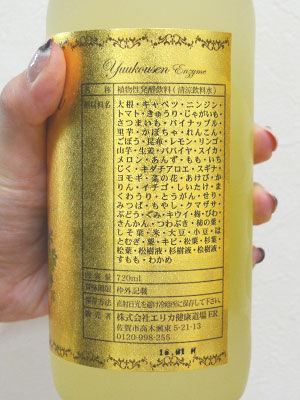 Yuukousen Enzyme
名 称 植物性発酵飲料(清涼飲料水)
原材料名 大根・キャベツ・ニンジン・
トマト・きゅうり・じゃがいも・
さつまいも・パイナップル・
里芋・かぼちゃ・れんこん・
ごぼう・昆布・レモン・リンゴ・
山芋・生姜・パパイヤ・スイカ・
メロン・あんず・もも・いち
じく・キダチアロエ・スギナ・
ヨモギ・菜の花・あけび・か
りん・イチゴ・しいたけ・ま
くわうり・とうがん・せり・
みつば・もやし・クマザサ・
ぶどう・ぐみ・キウイ・梅・びわ・
きんかん・つわぶき・柿の葉・
しそ葉・米・大豆・小豆・は
とむぎ・粟・キビ・松葉・杉葉・
松葉・松樹液・杉樹液・松樹液・
すもも・わかめ
内容量 720ml
賞味期限 枠外記載
保存方法 直射日光を避け冷暗所に保存して下さい。
販売者 株式会社エリカ健康道場 ER
佐賀市高木瀬東5-21-13
0120-998-255